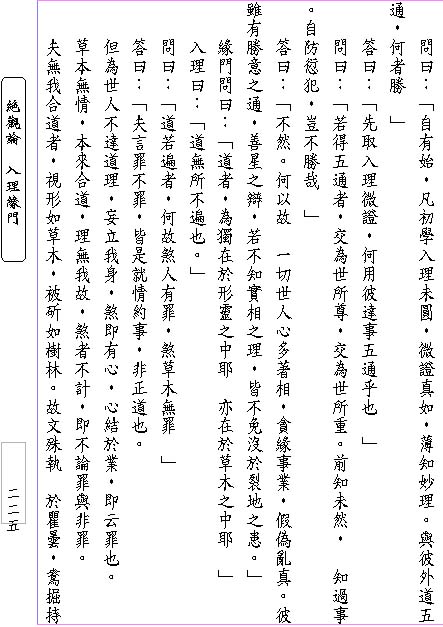 問曰：「自有始，凡初學入理未圓，微證真如，薄知妙理。與彼外道五
通，何者勝　」
答曰：「先取入理微證，何用彼達事五通乎也　」
問曰：「若得五通者，交為世所尊，交為世所重。前知未然，　知過事
。自防愆犯，豈不勝哉　」
答曰：「不然。何以故　一切世人心多著相，貪緣事業，假偽亂真。彼
雖有勝意之通，善星之辯，若不知實相之理，皆不免沒於裂地之患。」
緣門問曰：「道者，為獨在於形靈之中耶　亦在於草木之中耶　」
入理曰：「道無所不遍也。」
問曰：「道若遍者，何故煞人有罪，煞草木無罪　」
答曰：「夫言罪不罪，皆是就情約事，非正道也。
但為世人不達道理，妄立我身，煞即有心，心結於業，即云罪也。
草木無情，本來合道，理無我故，煞者不計，即不論罪與非罪。
夫無我合道者，視形如草木，被斫如樹林。故文殊執　於瞿曇，鴦掘持
絕觀論　入理緣門
二二五